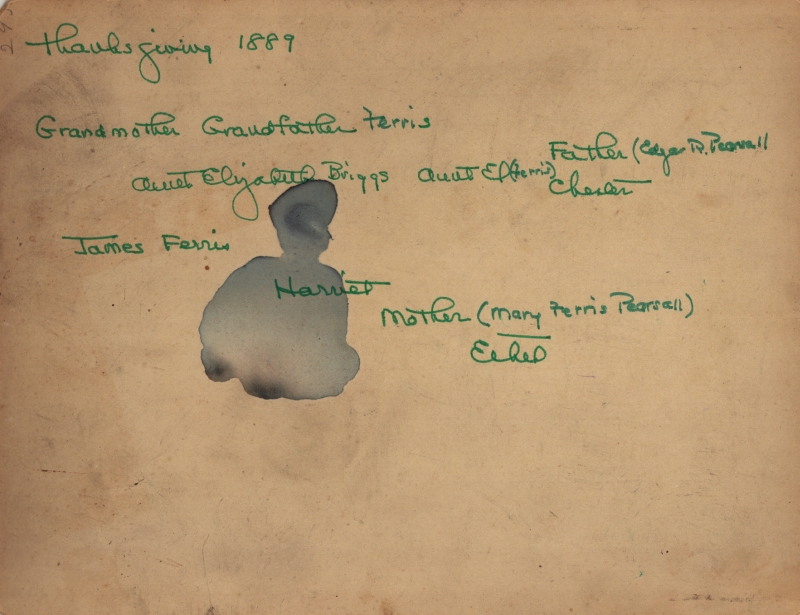 Thanksgiving 1889
Grandmother Grandfather Ferris
Father (Edgar R. Pearsall
Aunt Elizabeth Briggs Aunt El(Ferris)
Chester
James Ferris
Harriet
Mother (Mary Ferris Pearsall)
Ethel